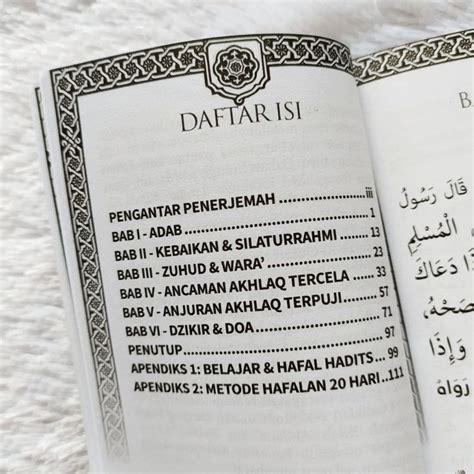 DAFTAR ISI
PENGANTAR PENERJEMAH..............................iii
BAB I - ADAB....................................................1
BAB II - KEBAIKAN & SILATURRAHMI .........13
BAB III - ZUHUD & WARA’.............................23
BAB IV - ANCAMAN AKHLAQ TERCELA........33
BAB V - ANJURAN AKHLAQ TERPUJI............57
BAB VI - DZIKIR & DOA..................................71
PENUTUP......................................................97
APENDIKS 1: BELAJAR & HAFAL HADITS.... 99
APENDIKS 2: METODE HAFALAN 20 HARI..111
قَالَ رَسُولُ
الْمُسْلِمِ
دَعَاكَ
وَإِذَا
رَوَاهُ